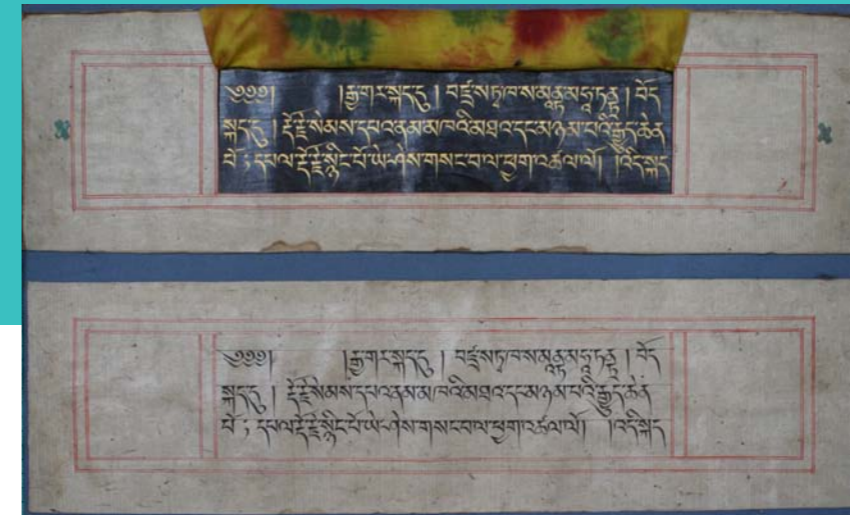 ༄༅༅། །རྒྱ་གར་སྐད་དུ། བཛྲ་སཏྭ་ཁ་ས་མནྟ་མ་ཧཱ་ཏནྟྲ། བོད་
སྐད་དུ། རྡོ་རྗེ་སེམས་དཔའ་ནམ་མཁའི་མཐའ་དང་མཉམ་པའི་རྒྱུད་ཆེན་
པོ; དཔལ་རྡོ་རྗེ་སྙིང་པོ་ཡེ་ཤེས་གསང་བ་ལ་ཕྱག་འཚལ་ལོ། །འདི་སྐད་
༄༅༅། །རྒྱ་གར་སྐད་དུ། བཛྲ་སཏྭ་ཁ་ས་མནྟ་མ་ཧཱ་ཏནྟྲ། བོད་
སྐད་དུ། རྡོ་རྗེ་སེམས་དཔའ་ནམ་མཁའི་མཐའ་དང་མཉམ་པའི་རྒྱུད་ཆེན་
པོ; དཔལ་རྡོ་རྗེ་སྙིང་པོ་ཡེ་ཤེས་གསང་བ་ལ་ཕྱག་འཚལ་ལོ། །འདི་སྐད་